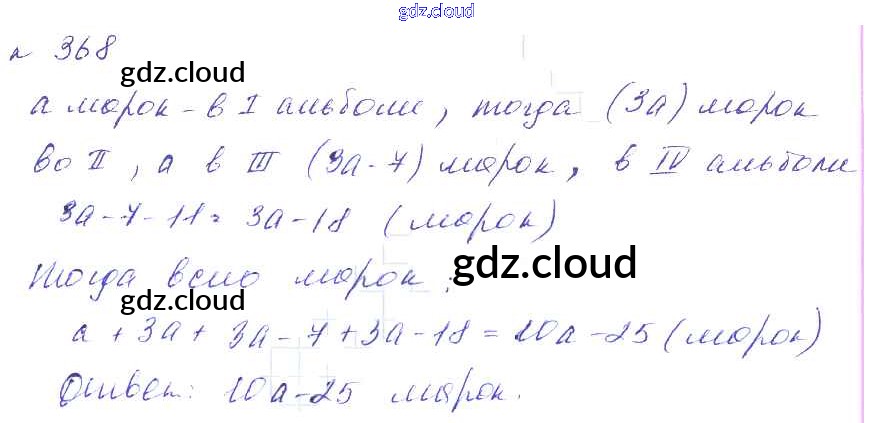 gdz.cloud
№ 368
gdz.cloud
а марок - в I альбоме, тогда (3а) марок
во II, а в III (3а-7) марок, в IV альбоме
3а-7-11= 3а-18 (марок)
gdz.cloud
Тогда всего марок:
gdz.cloud
а + 3а + 3а - 7 + 3а - 18 = 10а - 25 (марок)
Ответ: 10а-25 марок.